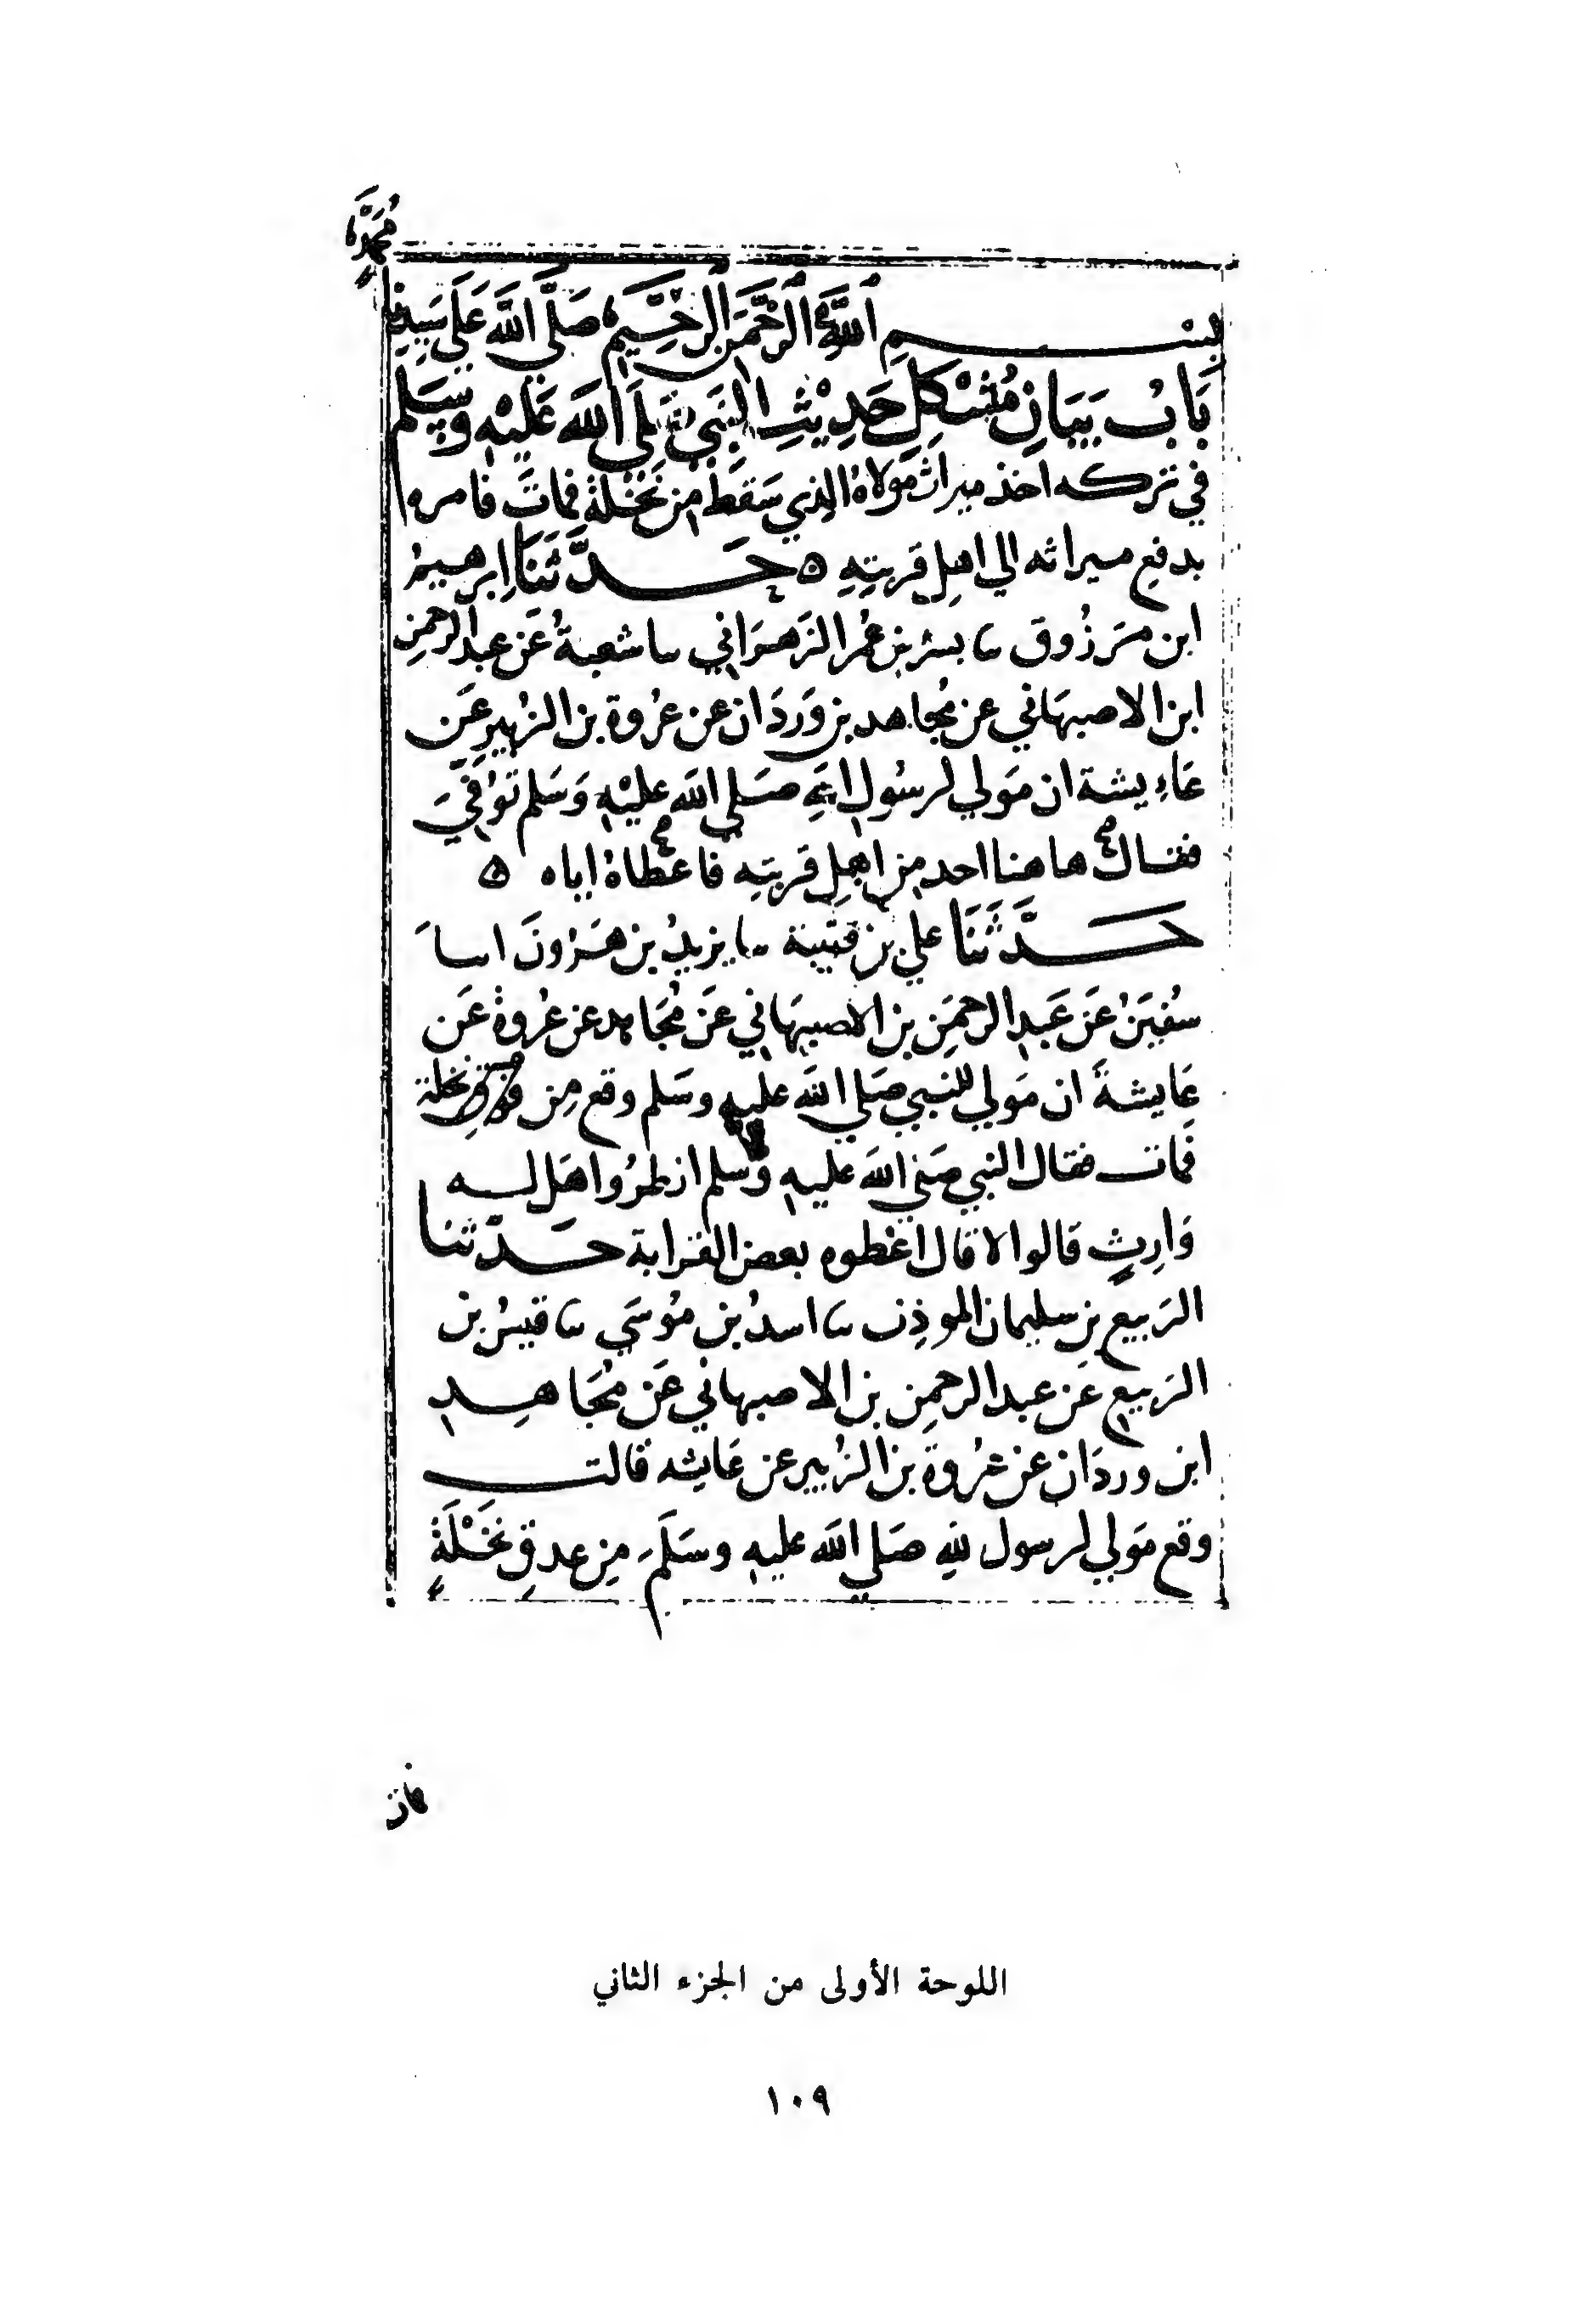 بِسْمِ ٱللَّهِ ٱلرَّحْمَنِ ٱلرَّحِيمِ صَلَّى اللَّهُ عَلَى سَيِّدِنَا
مُحَمَّدٍ
بَابُ بَيَانِ مُشْكِلِ حَدِيْثِ النَّبِيِّ صَلَّى اللَّهُ عَلَيْهِ وَسَلَّم
في تركه اخذ ميراث مَولاهُ الذي سَقَطَ مِن نَخْلَةٍ فماتَ فامره
بدفع ميراثه الي اهلِ قريتِهِ ه حَدَّثَنَا ابرهيمُ
ابن مَرزُوق نا بشر بن عُمر الزَهرَاني نا شعبةُ عَن عبد الرحمنِ
ابن الاصبهَاني عن مُجاهد بن وَردَان عن عُروة بن الزُبيرِ عَن
عَايِشة ان مَولي لرسُولِ اللهِ صَلي اللهَ عليْهِ وَسَلم تُوُفِّيَ
فقال هاهنا احد مِن اهلِ قريتِه فاعطاهُ اياه ه
حَدَّثَنَا علي بن قتيبة نا يزيدُ بن هَرُونَ انا
سُفيَنُ عَن عَبدِ الرحمَنِ بن الاصبهَاني عَن مُجَاهد عن عُروةَ عَن
عَايشةَ ان مَولي للنبي صَلي اللهَ عليهِ وسَلم وقع مِن نخلة
فمات فقال النبي صَلي اللهَ عليهِ وسلم انظرُوا هَل له
وَارِثٍ قالوا لا قال اعْطوه بعض القرابة حَدَّثنا
الرَبيع بن سليمان الموذِن نا اسدُ بن مُوسَي نا قيسُ بن
الرَبيعِ عَن عبد الرحمنِ بن الاصبهاني عَن مُجَاهِدِ
ابن وردَان عن عُروةَ بن الزُبير عن عَايشه قالت
وقع مَولي لرسول اللهِ صَلي اللهَ عليهِ وسَلَم مِن عدقِ نَخْلَةٍ
فمات
اللوحة الأولى من الجزء الثاني
١٠٩